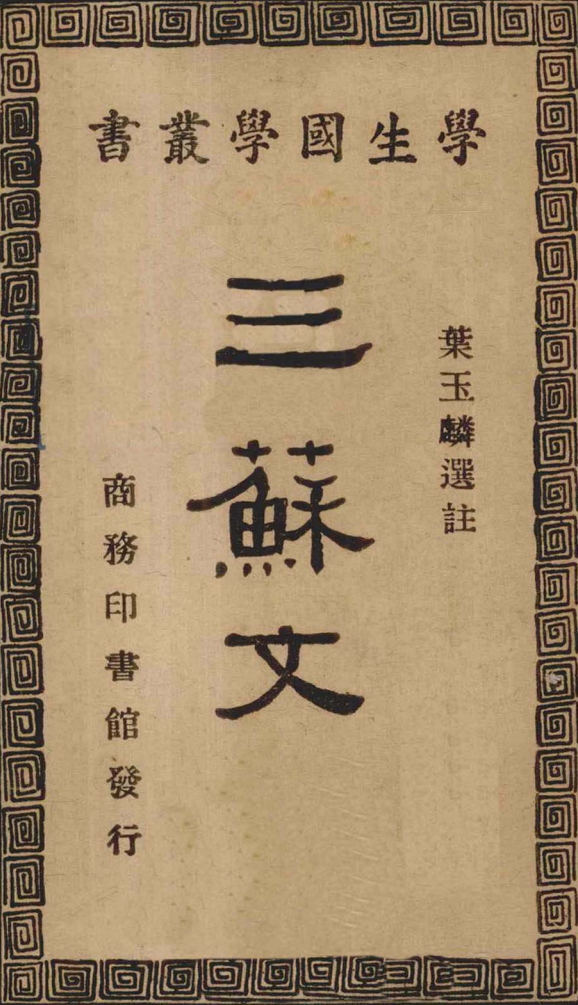 學生國學叢書
葉玉麟選註
三蘇文
商務印書館發行